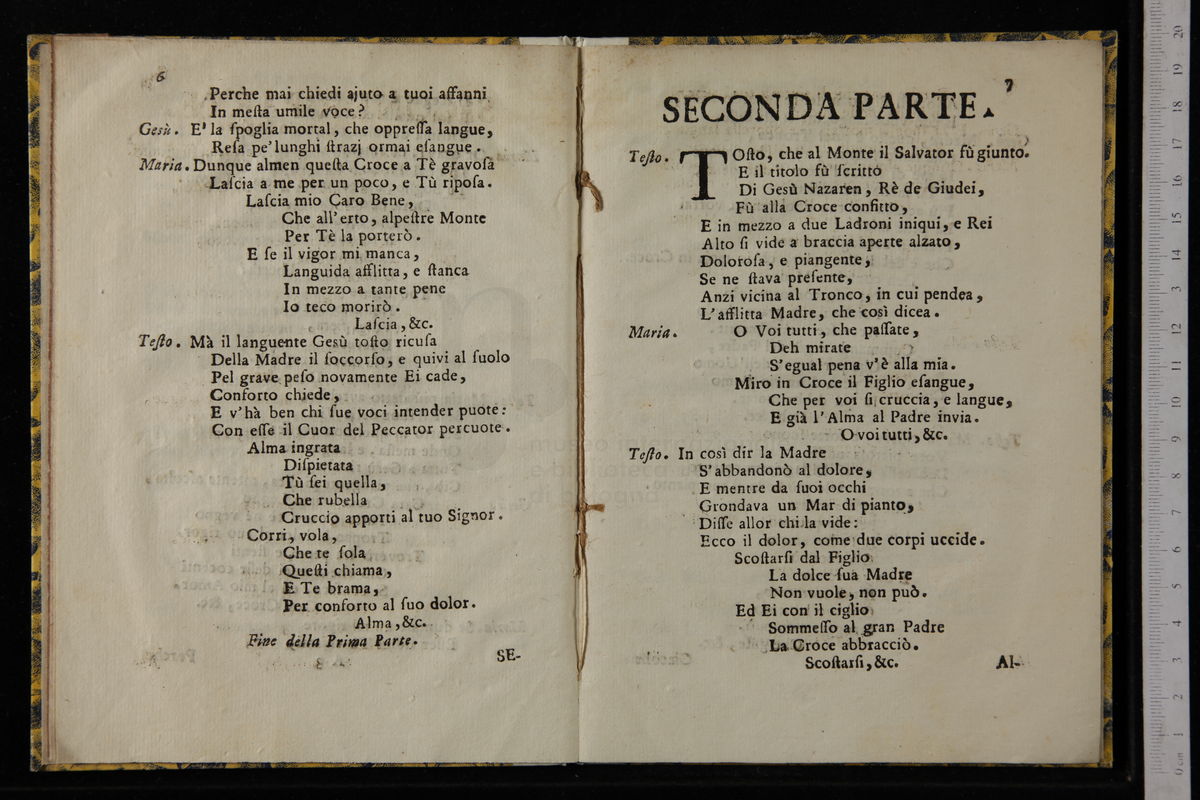 6
Perche mai chiedi ajuto a tuoi affanni
In meſta umile voce?
Gesù. E' la ſpoglia mortal, che oppreſſa langue,
Reſa pe' lunghi ſtrazj ormai eſangue.
Maria. Dunque almen queſta Croce a Tè gravoſa
Laſcia a me per un poco, e Tù ripoſa.
Laſcia mio Caro Bene,
Che all' erto, alpeſtre Monte
Per Tè la porterò.
E ſe il vigor mi manca,
Languida afflitta, e ſtanca
In mezzo a tante pene
Io teco morirò.
Laſcia, &c.
Teſto. Mà il languente Gesù toſto ricuſa
Della Madre il ſoccorſo, e quivi al ſuolo
Pel grave peſo novamente Ei cade,
Conforto chiede,
E v'hà ben chi ſue voci intender puote:
Con eſſe il Cuor del Peccator percuote.
Alma ingrata
Diſpietata
Tù ſei quella,
Che rubella
Cruccio apporti al tuo Signor.
Corri, vola,
Che te ſola
Queſti chiama,
E Te brama,
Per conforto al ſuo dolor.
Alma, &c.
Fine della Prima Parte.
SE-
7
SECONDA PARTE.
Teſto. TOſto, che al Monte il Salvator fù giunto.
E il titolo fù ſcritto
Di Gesù Nazaren, Rè de Giudei,
Fù alla Croce confitto,
E in mezzo a due Ladroni iniqui, e Rei
Alto ſi vide a braccia aperte alzato,
Doloroſa, e piangente,
Se ne ſtava preſente,
Anzi vicina al Tronco, in cui pendea,
L'afflitta Madre, che così dicea.
Maria. O Voi tutti, che paſſate,
Deh mirate
S'egual pena v'è alla mia.
Miro in Croce il Figlio eſangue,
Che per voi ſi cruccia, e langue,
E già l'Alma al Padre invia.
O voi tutti, &c.
Teſto. In così dir la Madre
S'abbandonò al dolore,
E mentre da ſuoi occhi
Grondava un Mar di pianto,
Diſſe allor chi la vide:
Ecco il dolor, come due corpi uccide.
Scoſtarſi dal Figlio
La dolce ſua Madre
Non vuole, non può.
Ed Ei con il ciglio
Sommeſſo al gran Padre
La Croce abbracciò.
Scoſtarſi, &c.
Al-